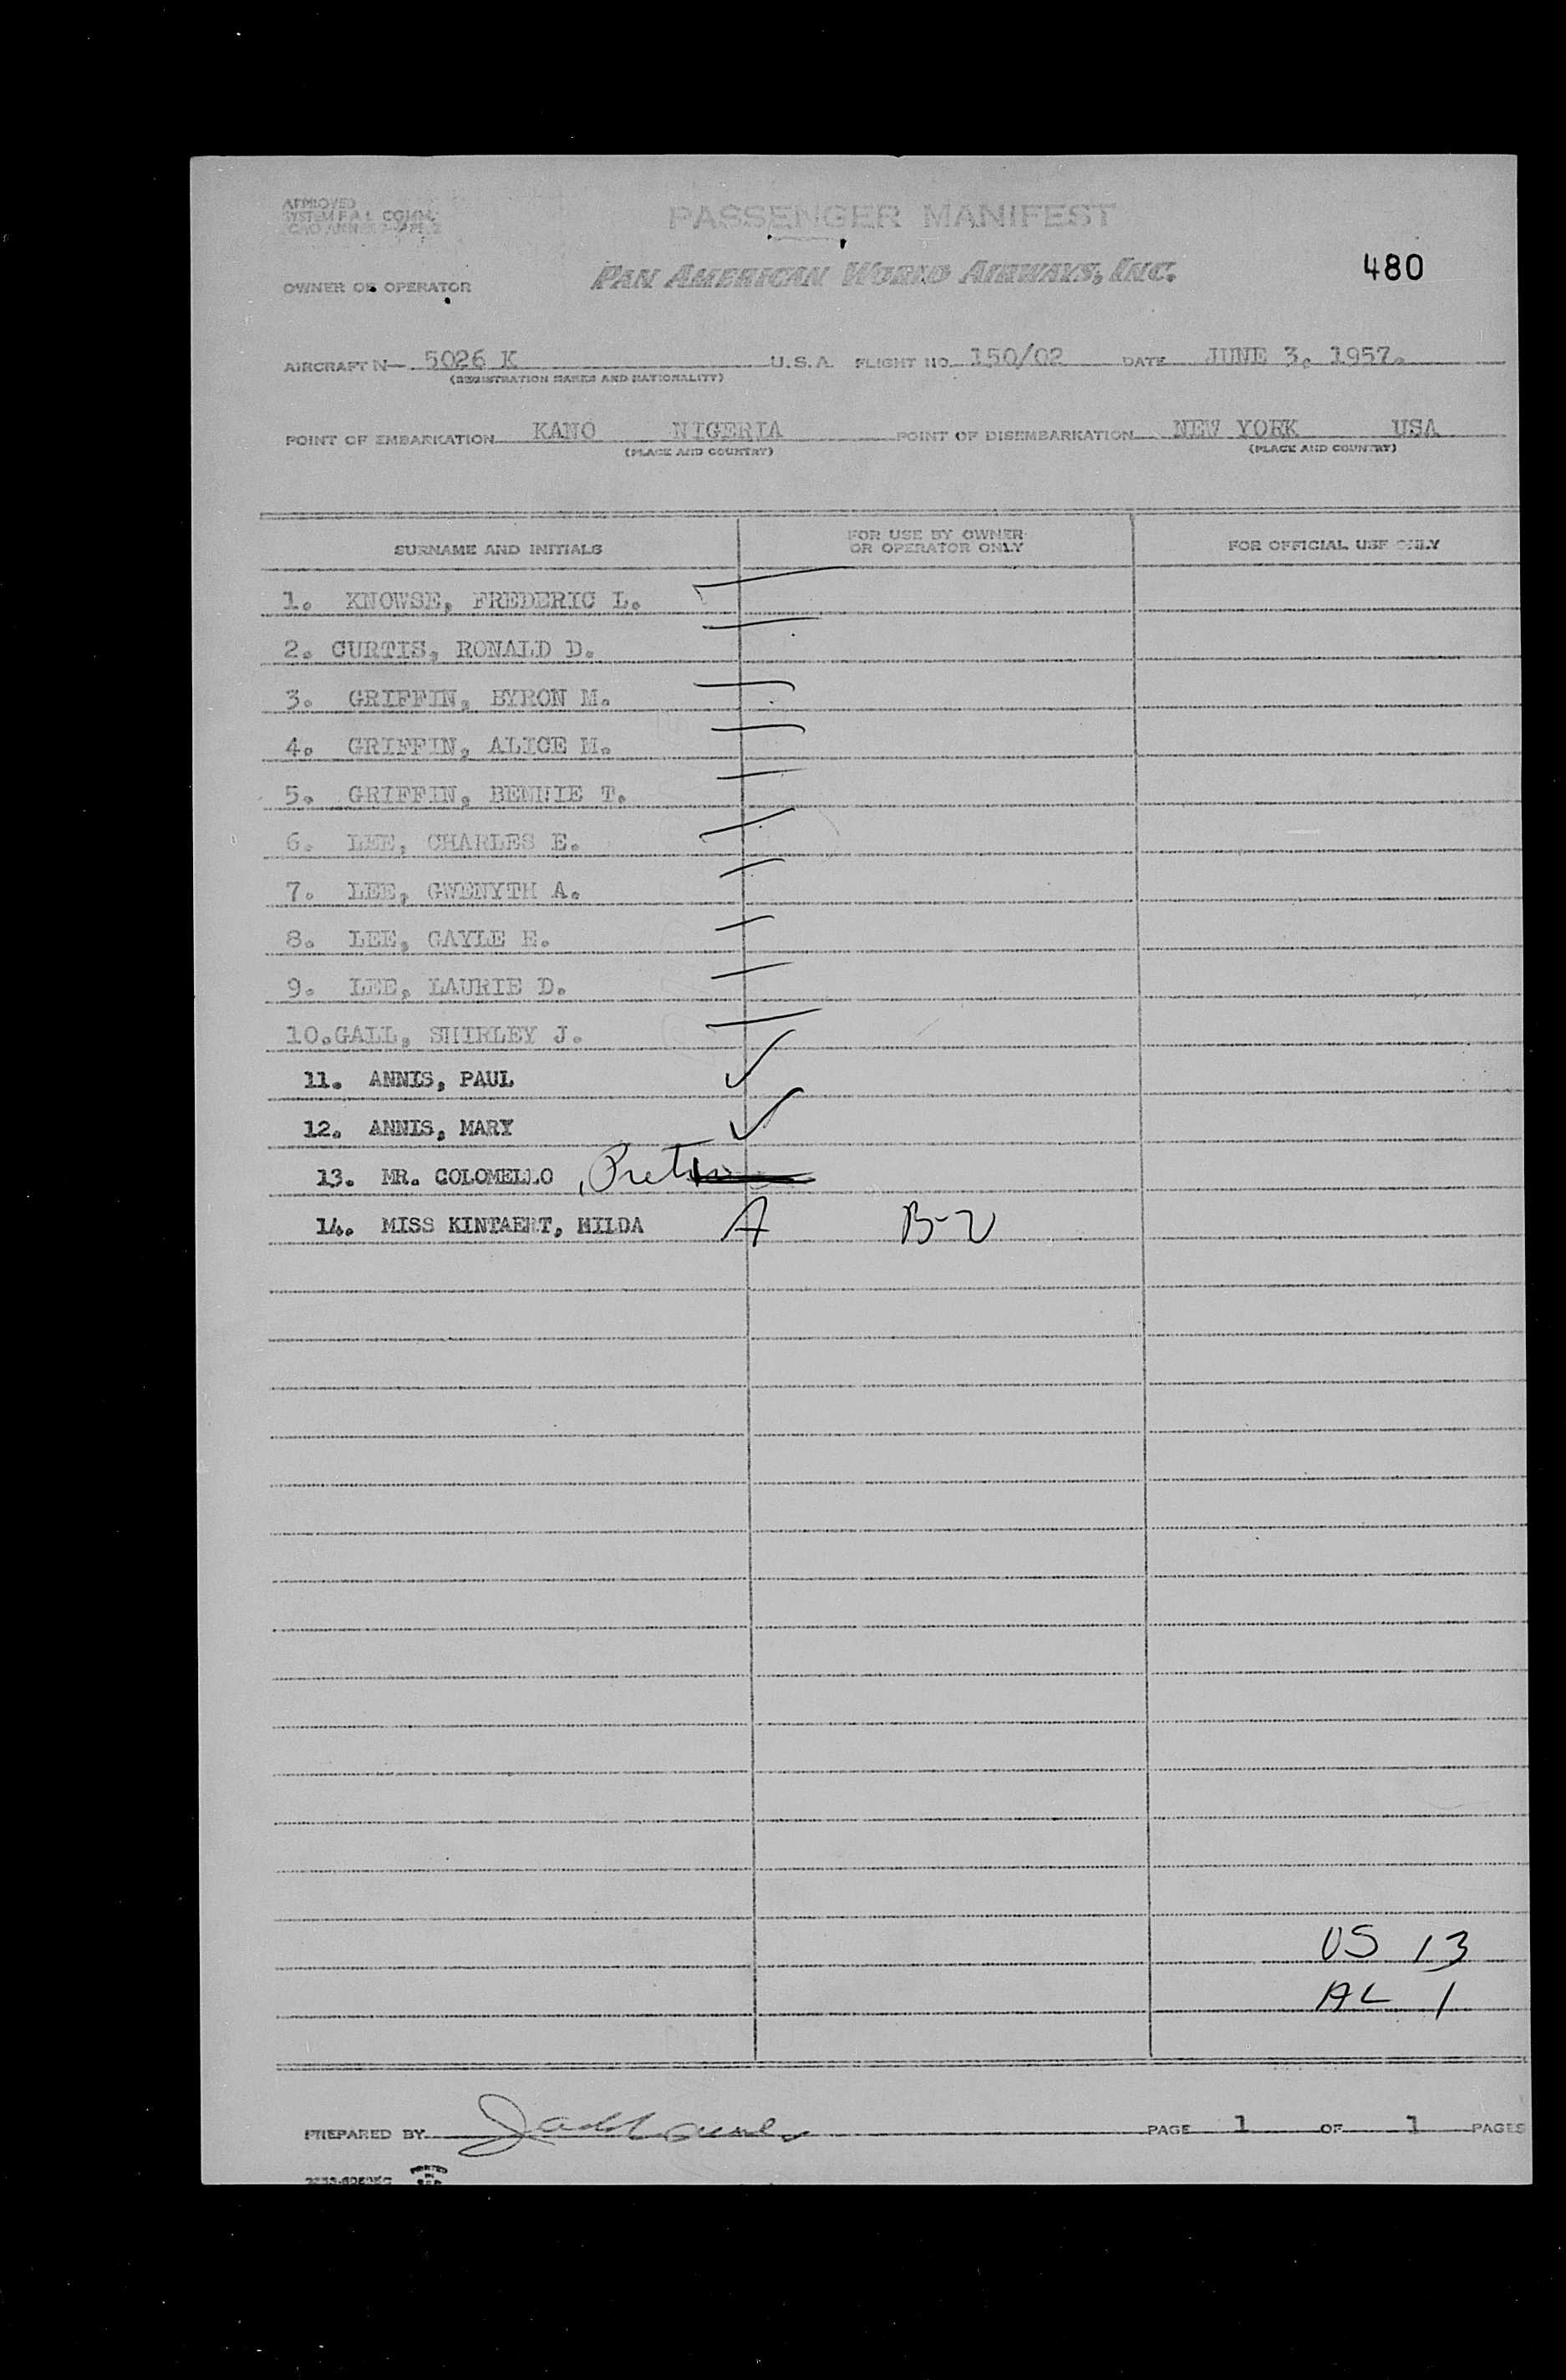 APPROVED
SYSTEM F.A.L. COMM.
PASSENGER MANIFEST
PAN AMERICAN WORLD AIRWAYS, INC.
480
OWNER OR OPERATOR
AIRCRAFT N— 5026 K U.S.A. FLIGHT NO. 150/02 DATE JUNE 3, 1957.
(REGISTRATION MARKS AND NATIONALITY)
POINT OF EMBARKATION KANO NIGERIA POINT OF DISEMBARKATION NEW YORK USA
(PLACE AND COUNTRY) (PLACE AND COUNTRY)
SURNAME AND INITIALS
FOR USE BY OWNER
OR OPERATOR ONLY
FOR OFFICIAL USE ONLY
1. KNOWSE, FREDERIC L.
2. CURTIS, RONALD D.
3. GRIFFIN, BYRON M.
4. GRIFFIN, ALICE M.
5. GRIFFIN, BENNIE T.
6. LEE, CHARLES E.
7. LEE, GWENYTH A.
8. LEE, GAYLE E.
9. LEE, LAURIE D.
10. GALL, SHIRLEY J.
11. ANNIS, PAUL
12. ANNIS, MARY
13. MR. COLOMELLO
14. MISS KINTAERT, HILDA A B-2
US 13
AL 1
PREPARED BY PAGE 1 OF 1 PAGES
PRINTED
IN